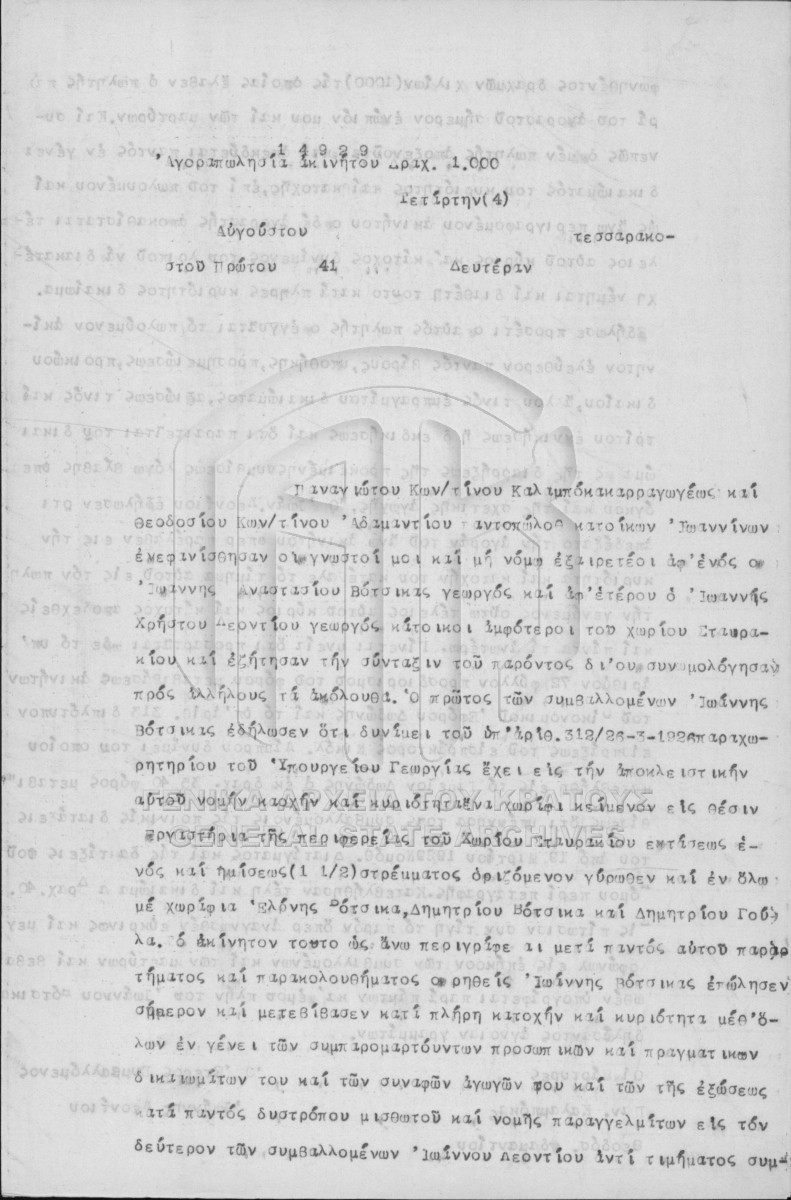 14929
Ἀγοραπωλησία ἀκινήτου Δραχ. 1.000
Τετάρτην(4)
Αὐγούστου τεσσαρακο-
στοῦ Πρώτου 41 Δευτέραν
Παναγιώτου Κων/τίνου Καλαμπόκα καρραγωγέως καί
Θεοδοσίου Κων/τίνου Ἀδαμαντίου παντοπώλου κατοίκων Ἰωαννίνων
ἐνεφανίσθησαν οἱ γνωστοί μοι καί μή νόμῳ ἐξαιρετέοι ἀφ'ἑνός ο
Ἰωάννης Ἀναστασίου Βότσικας γεωργός καί ἀφ'ἑτέρου ὁ Ἰωάννης
Χρήστου Λεοντίου γεωργός κάτοικοι ἀμφότεροι τοῦ χωρίου Σταυρα-
κίου καί ἐζήτησαν τήν σύνταξιν τοῦ παρόντος δι'ου συνωμολόγησαν
πρός ἀλλήλους τά ἀκόλουθα. Ὁ πρῶτος τῶν συμβαλλομένων Ἰωάννης
Βότσικας ἐδήλωσεν ὅτι δυνάμει τοῦ ὑπ'ἀριθ.312/26-3-1926παραχω-
ρητηρίου τοῦ Ὑπουργείου Γεωργίας ἔχει είς τήν ἀποκλειστικήν
αὐτοῦ νομήν κατοχήν καί κυριότητα ἕνα χωράφι κείμενον εἰς θέσιν
Ἐργαστήρια τῆς περιφερείας τοῦ Χωρίου Σταυρακίου ἐκτάσεως ἑ-
νός καί ἡμίσεως(1 1/2)στρέμματος ὁριζόμενον γύρωθεν καί ἐν ὅλῳ
μέ χωράφια Ἑλένης Βότσικα,Δημητρίου Βότσικα καί Δημητρίου Γοῦ-
λα.Τό ἀκίνητον τοῦτο ὡς ἄνω περιγράφεται μετά παντός αὐτοῦ παραρ
τήματος καί παρακολουθήματος ο ρηθείς Ἰωάννης Βότσικας ἐπώλησεν
σήμερον καί μετεβίβασεν κατά πλήρη κατοχήν καί κυριότητα μέθ'ὅ-
λων ἐν γένει τῶν συμπαρομαρτούντων προσωπικῶν καί πραγματικων
δικαιωμάτων του καί τῶν συναφῶν ἀγωγῶν του καί τῶν τῆς ἐξώσεως
κατά παντός δυστρόπου μισθωτοῦ καί νομῆς παραγγελμάτων εἰς τόν
δεύτερον τῶν συμβαλλομένων Ἰωάννου Λεοντίου ἀντί τιμήματος συμ-
ΓΕΝΙΚΑ ΑΡΧΕΙΑ ΤΟΥ ΚΡΑΤΟΥΣ
GENERAL STATE ARCHIVES